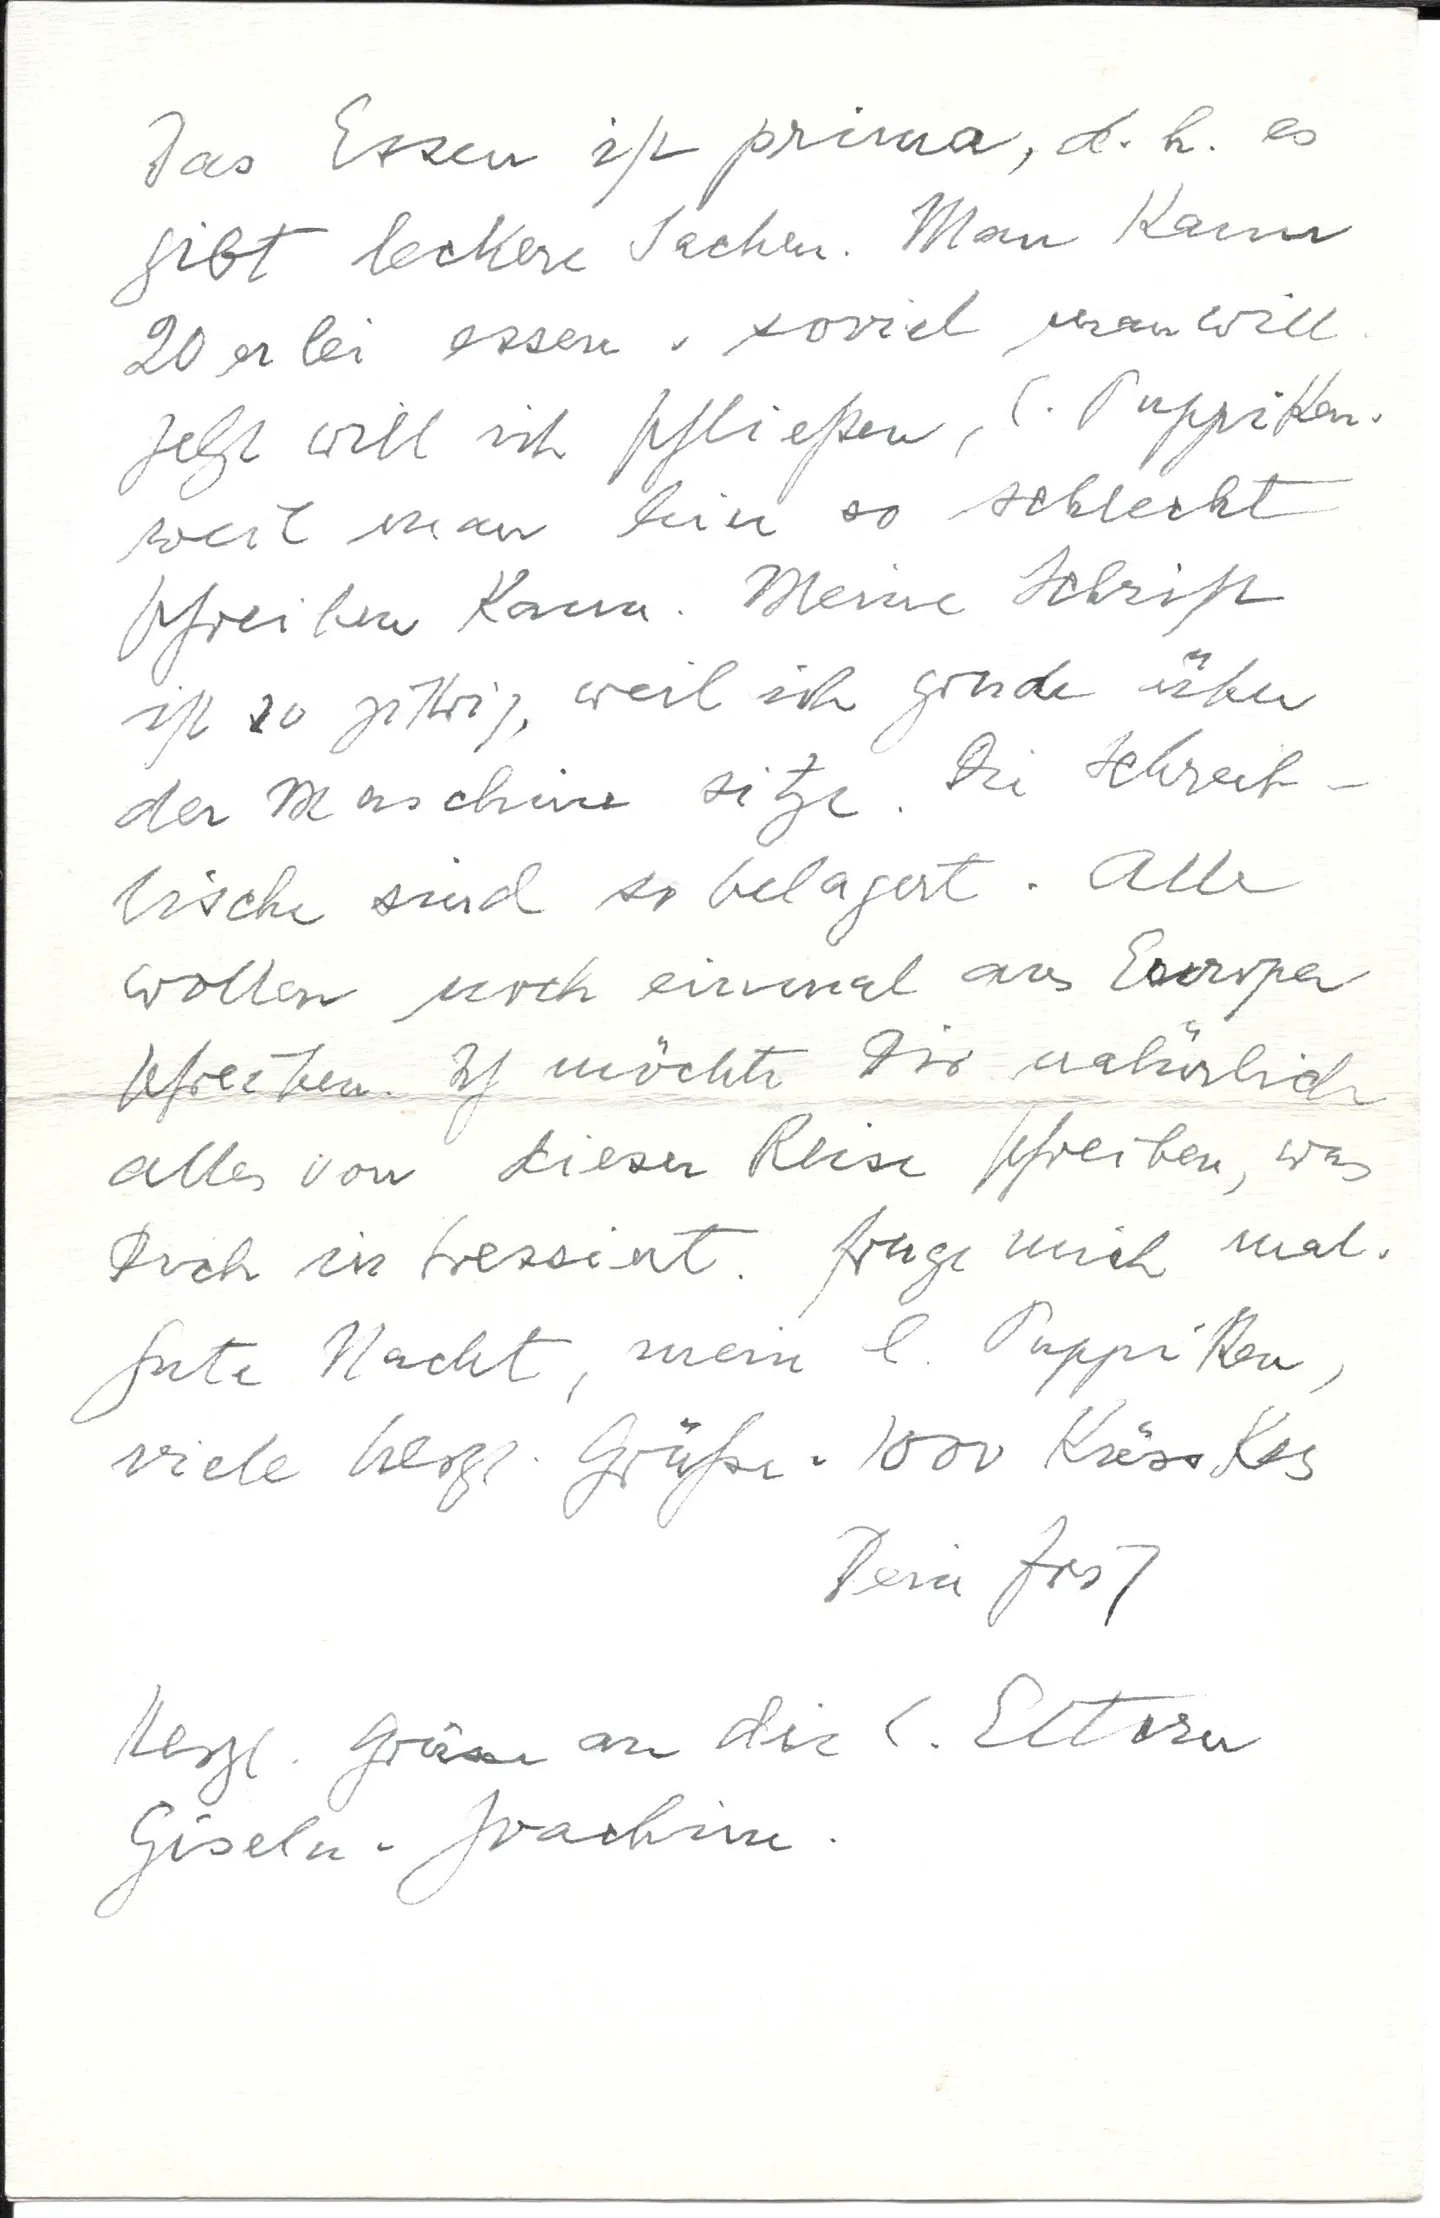 Das Essen ist prima, d. h. es
gibt leckere Sachen. Man kann
20 erlei essen u. soviel man will.
Jetzt will ich schließen, l. Puppiken.
weil man hier so schlecht
schreiben kann. Meine Schrift
ist so zittrig, weil ich grade über
der Maschine sitze. Die Schreib-
tische sind so belagert. Alle
wollen noch einmal aus Europa
schreiben. Ich möchte Dir natürlich
alles von dieser Reise schreiben, was
Dich interessiert. Frage mich mal.
Gute Nacht, mein l. Puppiken,
viele herzl. Grüße u. 1000 Küsskes
Dein
Herzl. Grüsse an die l. Eltern
Gisela u. Joachim.